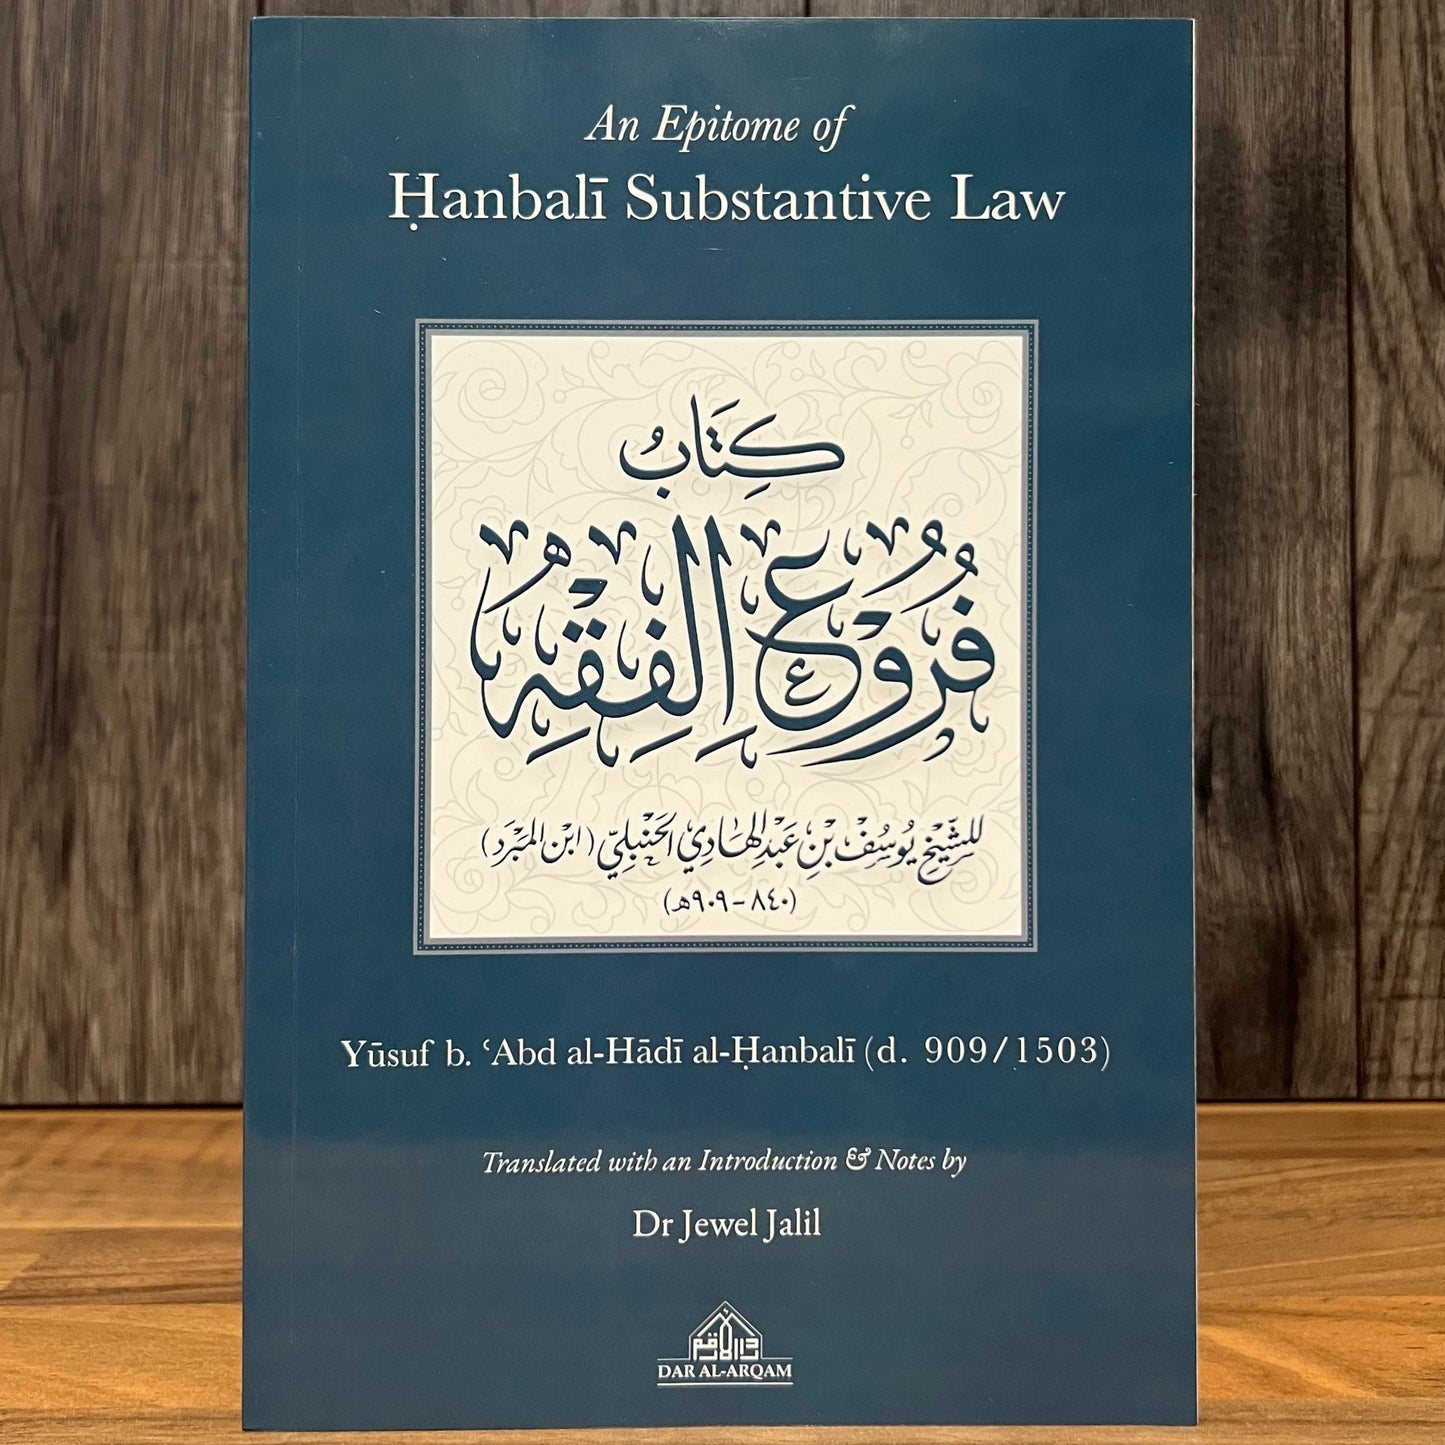 An Epitome of
Ḥanbalī Substantive Law
كِتَابُ
فُرُوْعِ الْفِقْهِ
للشَّيْخِ يُوسُفْ بْنِ عَبْدِ الهَادِي الحَنْبَلِيّ (ابْنِ المَبْرَد)
(٨٤٠ – ٩٠٩هـ)
Yūsuf b. ʿAbd al-Hādī al-Ḥanbalī (d. 909/1503)
Translated with an Introduction & Notes by
Dr Jewel Jalil
دار الأرقم
DAR AL-ARQAM